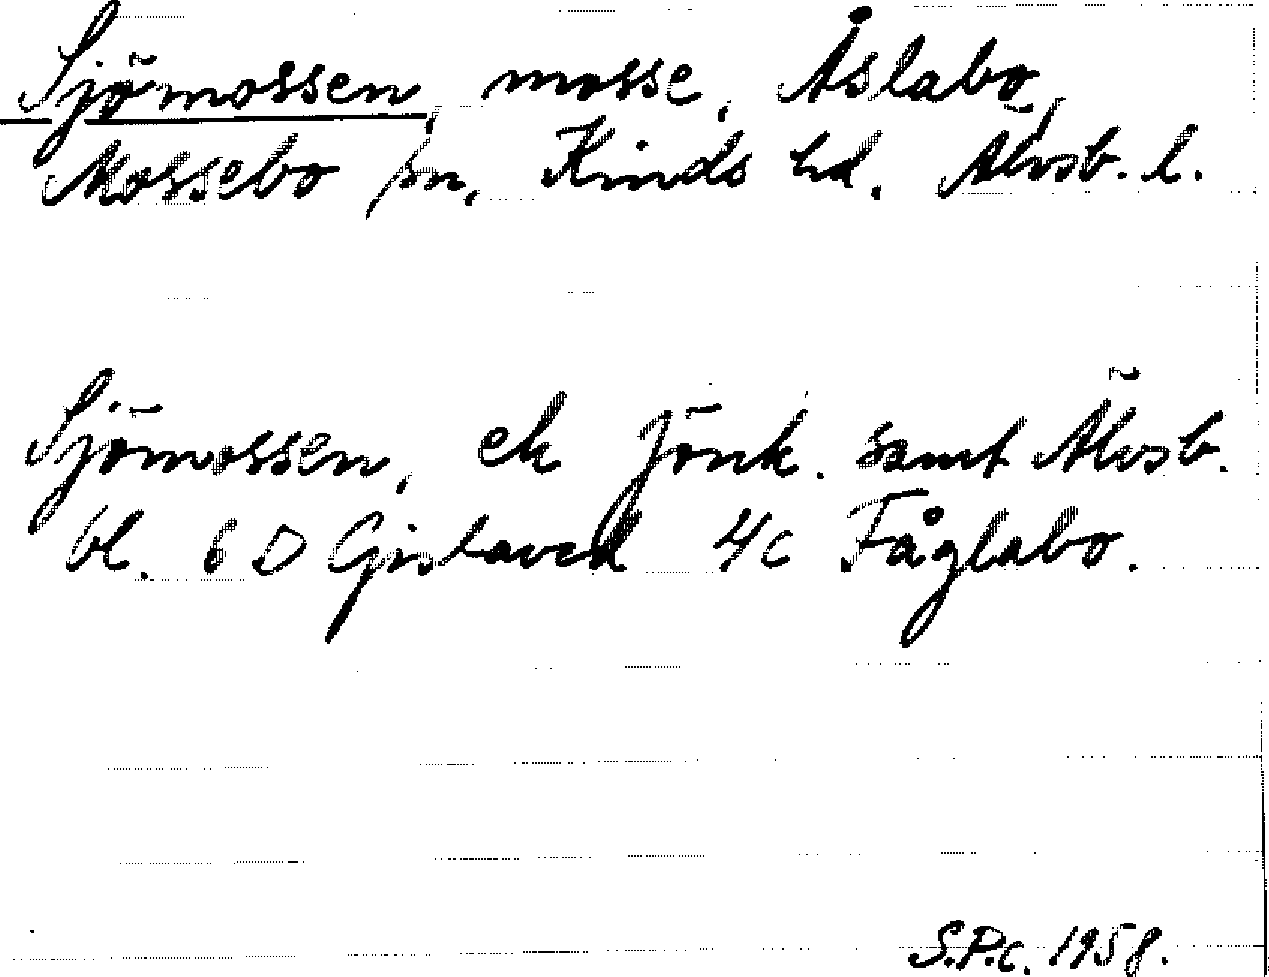 Sjömossen, mosse, Åslabo,
Mossebo sn, Kinds hd. Älvsb. l.
Sjömossen, ek Jönk. samt Älvsb.
bl. 6 D Gislaved 4c Fåglabo.
S.P.C. 1958.